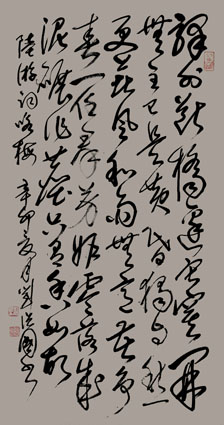 驛外斷橋邊寂寞開
無主已是黃昏獨自愁
更著風和雨無意苦爭
春一任群芳妒零落成
泥碾作塵只有香如故
陸游詞咏梅 辛卯夏月劉洪國書